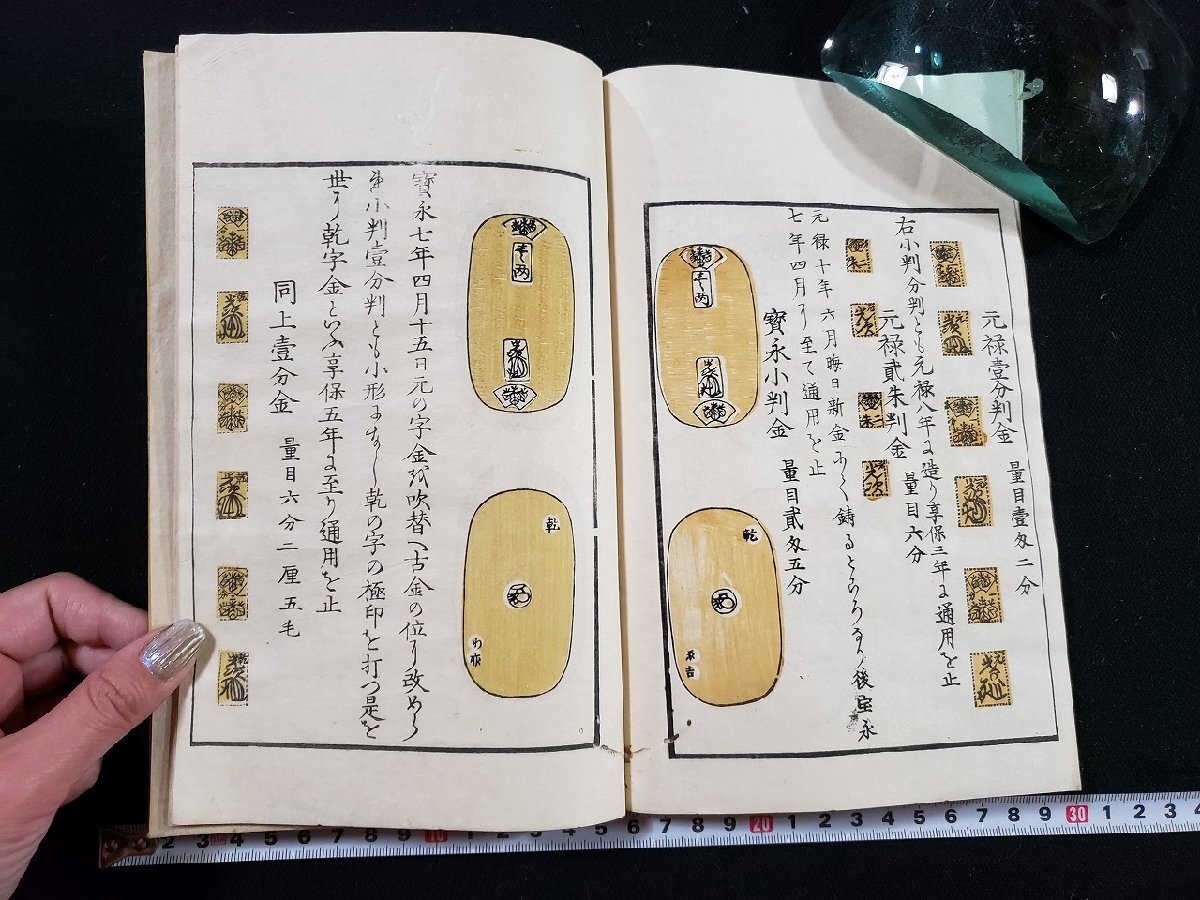 元禄壹分判金 量目壹匁二分
右小判分判とも元禄八年に造り享保三年に通用を止
元禄貳朱判金 量目六分
元禄十年六月晦日新金にて鋳るところなり後宝永
七年四月に至て通用を止
寶永小判金 量目貳匁五分
壱両
乾
寶永七年四月十五日元の字金を吹替へ古金の位に改めら
れ小判壹分判とも小形になし乾の字の極印を打つ是を
世に乾字金といふ享保五年に至り通用を止
壱両
乾
同上壹分金 量目六分二厘五毛
2 3 4 5 6 7 8 9 10 1 2 3 4 5 6 7 8 9 20 1 2 3 4 5 6 7 8 9 30 1 2 3 4